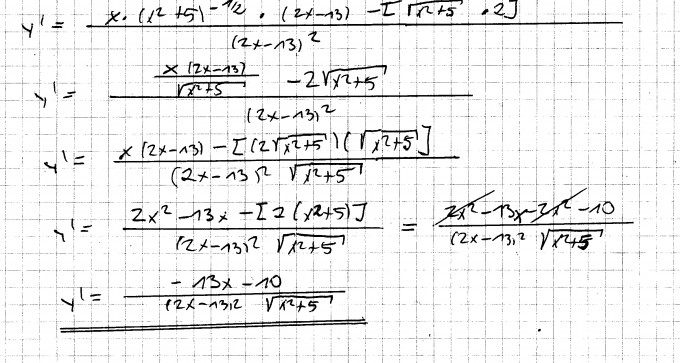 y' = (x · (x² + 5)^(-1/2) · (2x-13) - [√(x²+5) · 2]) / (2x-13)²
y' = (x(2x-13)/√(x²+5) - 2√(x²+5)) / (2x-13)²
y' = (x(2x-13) - [(2√(x²+5))(√(x²+5)]) / ((2x-13)² √(x²+5))
y' = (2x² - 13x - [2(x2+5)]) / ((2x-13)² √(x²+5)) = (2x² - 13x - 2x² - 10) / ((2x-13)² √(x²+5))
y' = (-13x - 10) / ((2x-13)2 √(x²+5))